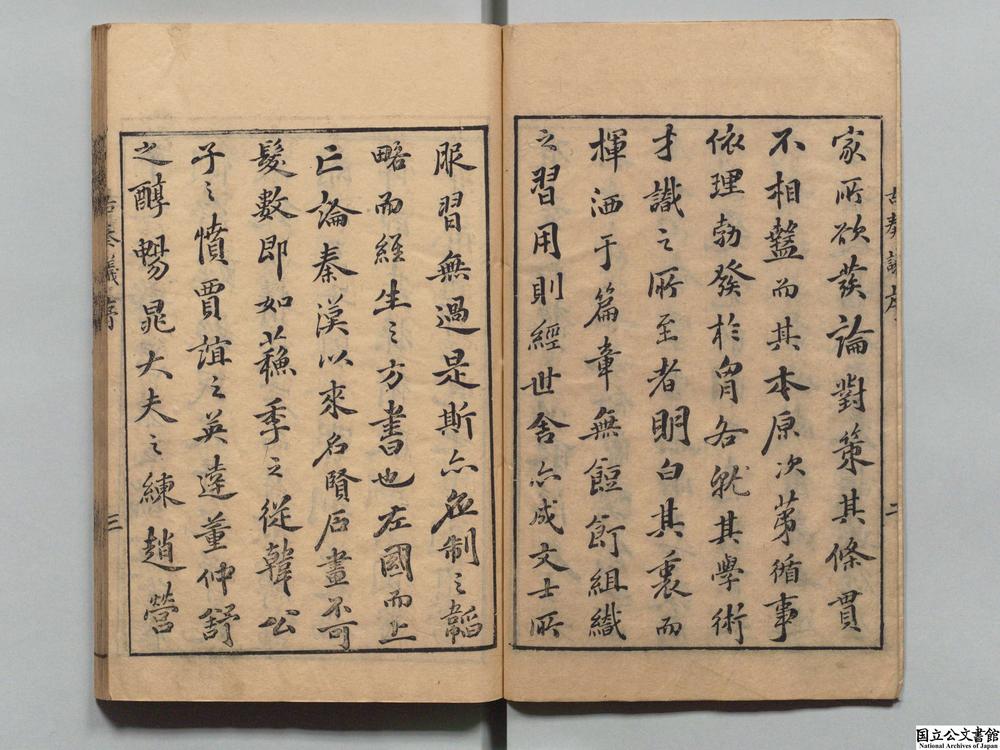 家所欲發論對策其條貫
不相蓋而其本原次第循事
依理勃發於胷各就其學術
才識之所至者明白其裏而
揮洒于篇章無餖飣組織
之習用則經世舍亦成文士所
古奏議序
二
服習無過是斯亦應制之韜
略而經生之方書也左國而上
亡論秦漢以來名賢石畫不可
髮數即如蘓季之從韓公
子之憤賈誼之英達董仲舒
之醇暢晁大夫之練趙營
古奏議序
三
国立公文書館
National Archives of Japan